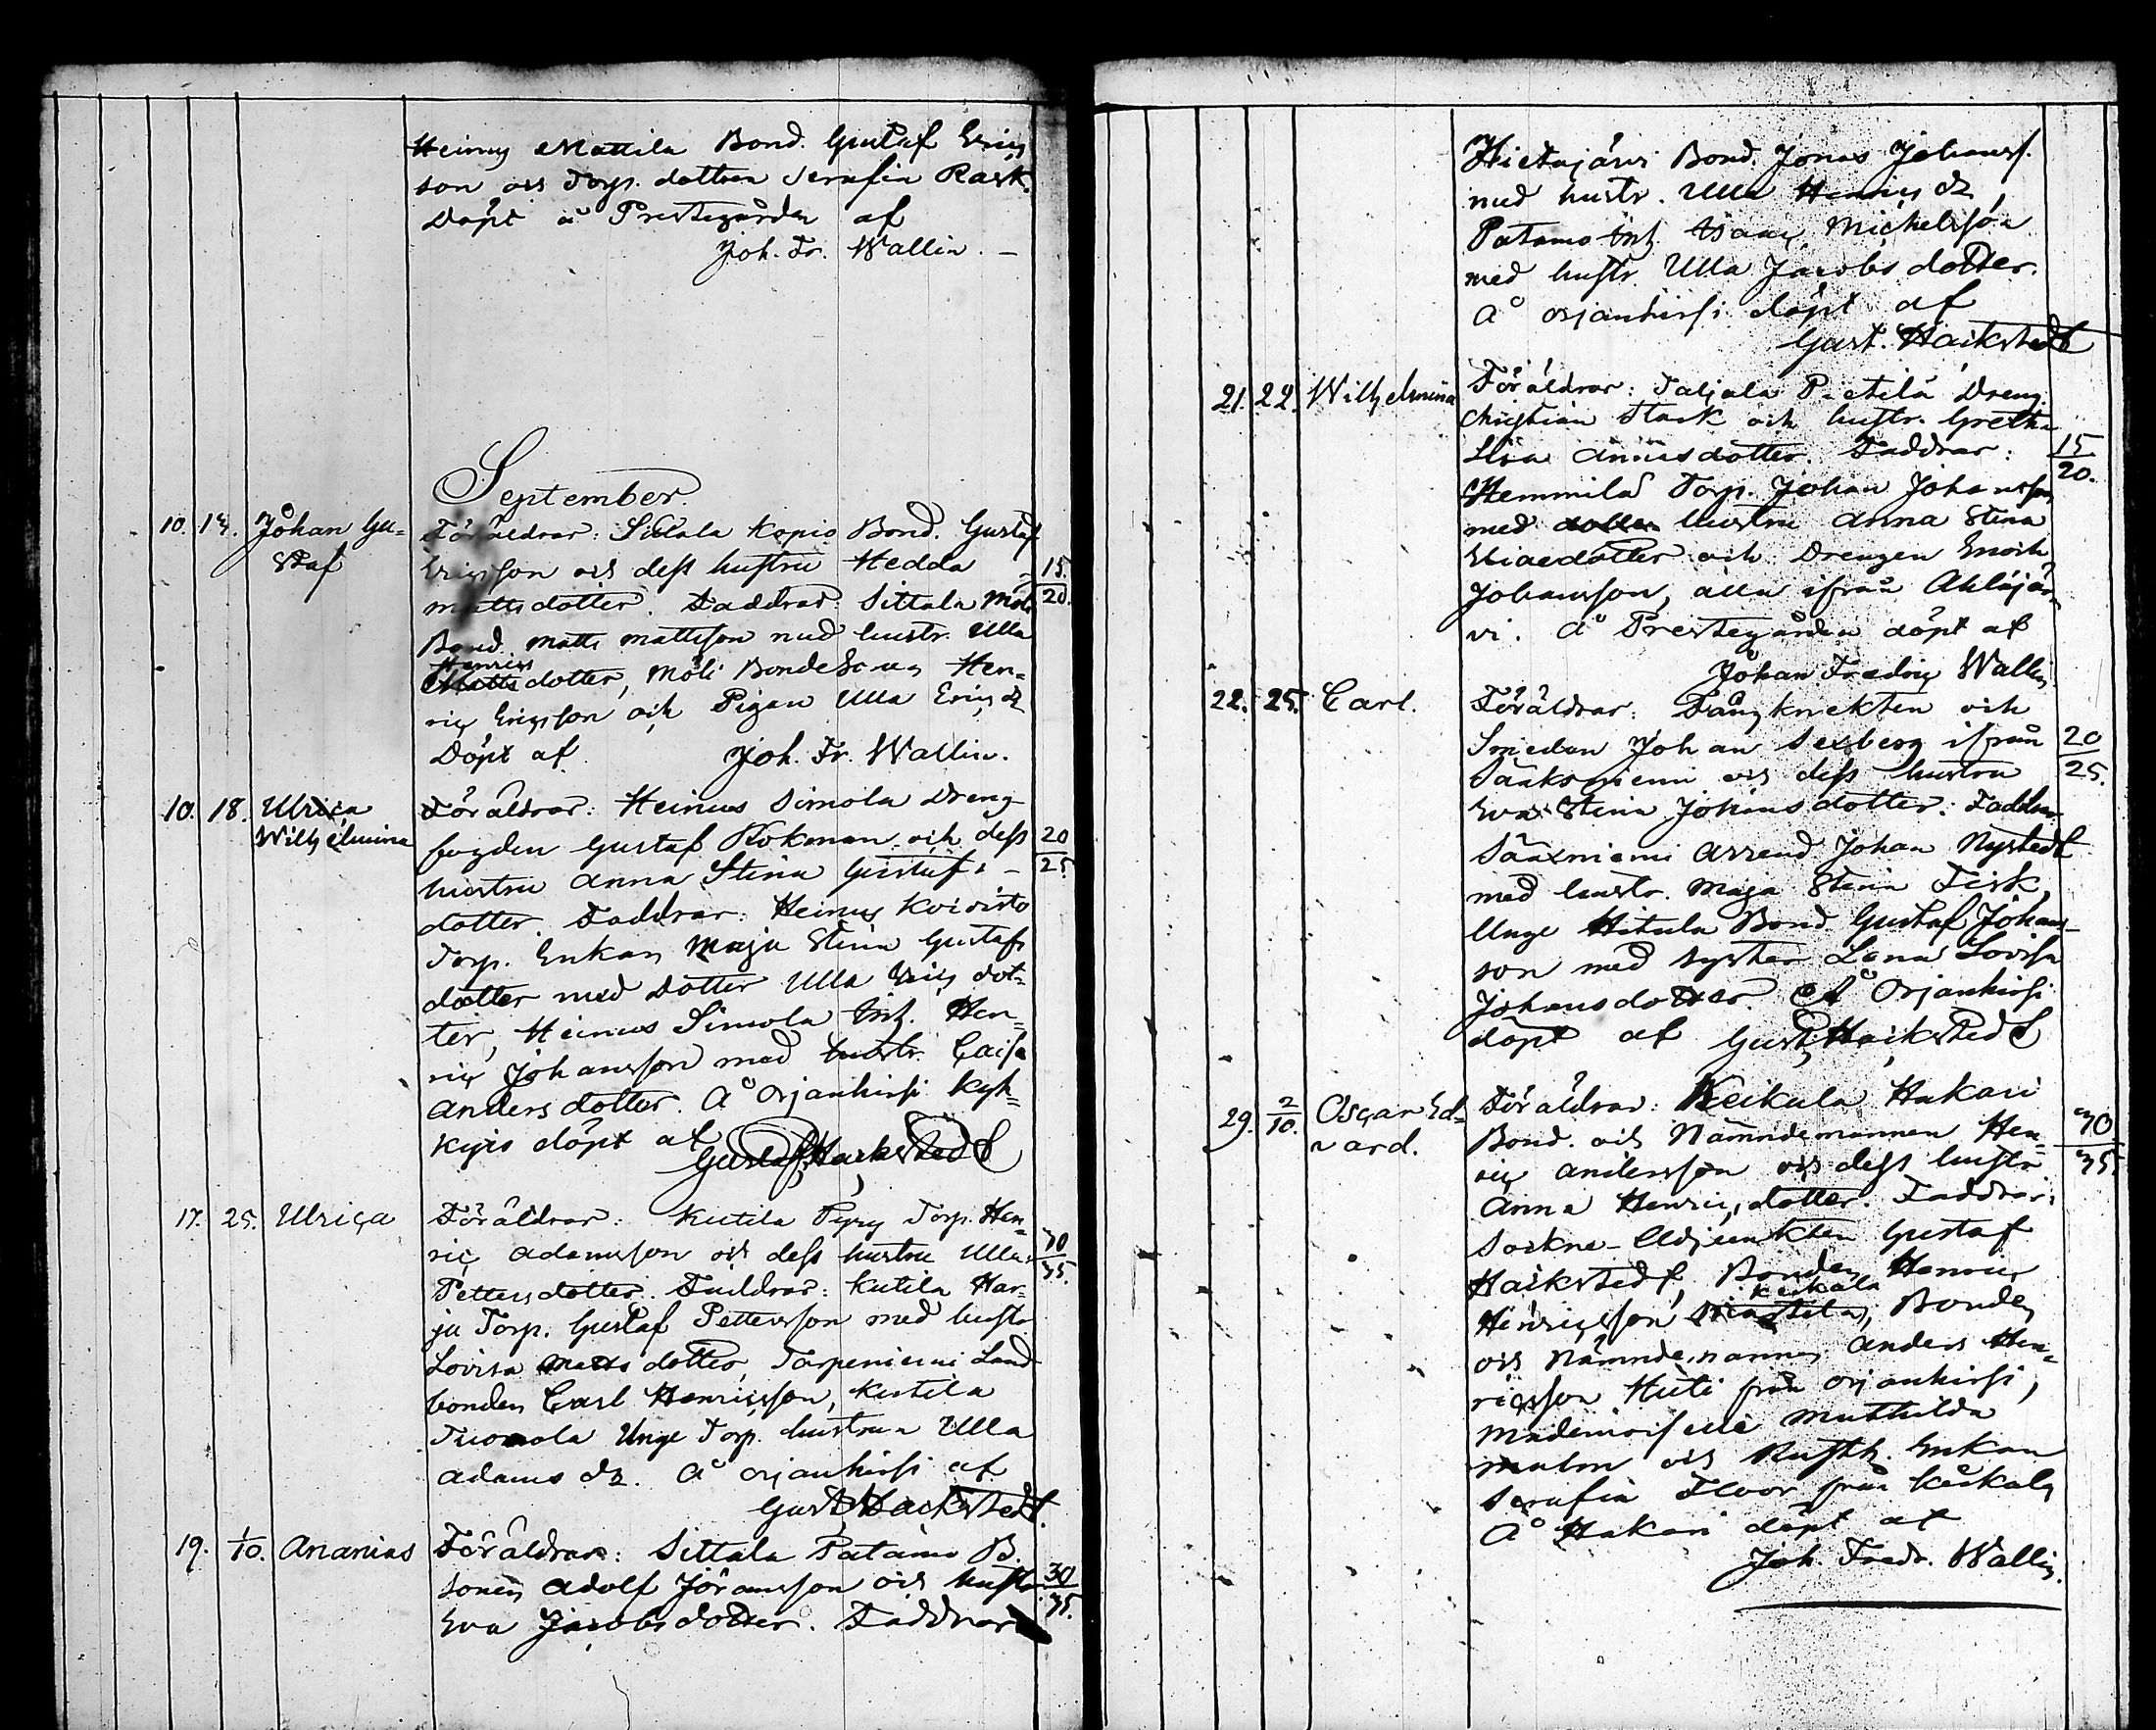 Heinus Mattila Bond. Gustaf Erics
son och Torp. dottren Serafia Rask.
Döpt å Prestegården af
Joh. Fr. Wallin. –
September.
10. 13. Johan Gu= Föräldrar: Sittala Kopio Bond. Gustaf
staf Ericsson och dess hustru Hedda 15.
mattsdotter. Faddrar: Sittala Möli 20.
Bond. Matts Mattsson med hustr. Ulla
Henrics
Matts dotter, Möli Bondesonen Hen=
ric Ericsson och Pigan Ulla Erics dr
Döpt af Joh. Fr. Wallin.
10. 18. Ulrica Föräldrar: Heinus Simola Dreng
Wilhelmina fogden Gustaf Kokman och dess 20
hustru Anna Stina Gustafs – 25
dotter. Faddrar: Heinus Koivisto
Torp. Enkan Maja Stina Gustafs
dotter med dotter Ulla Erics dot=
ter, Heinus Simola Inh. Hen=
ric Johansson med hustr. Caisa
Andersdotter. Å Orjanhirsi Kyh=
kyis döpt af
Gustaf Hackstedt
17. 25. Ulrica Föräldrar: Kutila Pyry Torp. Hen=
ric Adamsson och dess hustru Ulla 30
Pettersdotter. Faddrar: Kutila Har= 35.
ju Torp. Gustaf Pettersson med hustr
Lovisa Matts dotter, Tarpeniemi Land
bonden Carl Henricsson, Kutila
Tuomola Unge Torp. hustrun Ulla
Adams dr. Å Orjanhirsi af
Gust. Hackstedt.
19. 1/10. Ananias Föräldrar: Sittala Patamo B.
sonen Adolf Jöransson och hustr 30
Eva Jacobs dotter. Faddrar 35.
Hietajärvi Bond. Jonas Johanss.
med hustr. Ulla Henrics dr,
Patamo Inh. Isaac Michelsson
med hustr. Ulla Jacobs dotter.
Å Orjanhirsi döpt af
Gust. Hackstedt
21. 22. Wilhelmina Föräldrar: Taljala Pietilä Dreng.
Christian Stark och hustr. Gretha
Lisa Anansdotter. Faddrar: 15
Hemmilä Torp. Johan Johansson 20.
med hustru Anna Stina
Eliaedotter och Drengen Enoch
Johansson, alla ifrån Ahlajär=
vi. Å Prestegården döpt af
Johan Fredric Wallin
22. 25. Carl. Föräldrar: Fångknekten och
Smeden Johan Sexberg ifrån 20
Sääksniemi och dess hustru 25.
Eva Stina Johansdotter. Faddrar
Sääxniemi Arrend Johan Nystedt
med hustr. Maja Stina Fisk,
Unge Hitula Bond. Gustaf Johans=
son med syster Lena Lovisa
Johansdotter. Å Orjanhirsi
döpt af Gust. Hackstedt
29. 2/10. Oscar Ed= Föräldrar: Keikula Hakari
vard. Bond. och Nämndemannen Hen= 30
ric Andersson och dess hustr 35.
Anna Henricsdotter. Faddrar:
Sockne-Adjunkten Gustaf
Hackstedt, Bonden Henric
Keikala
Henricsson Mastila, Bonden
och Nämndemannen Anders Hen=
ricsson Huti från Orjanhirsi,
Mademoiselle Mathilda
Malm och Rusth. Enkan
Serafia Floor från Keikala
Å Hakari döpt af
Joh. Fredr. Wallin.